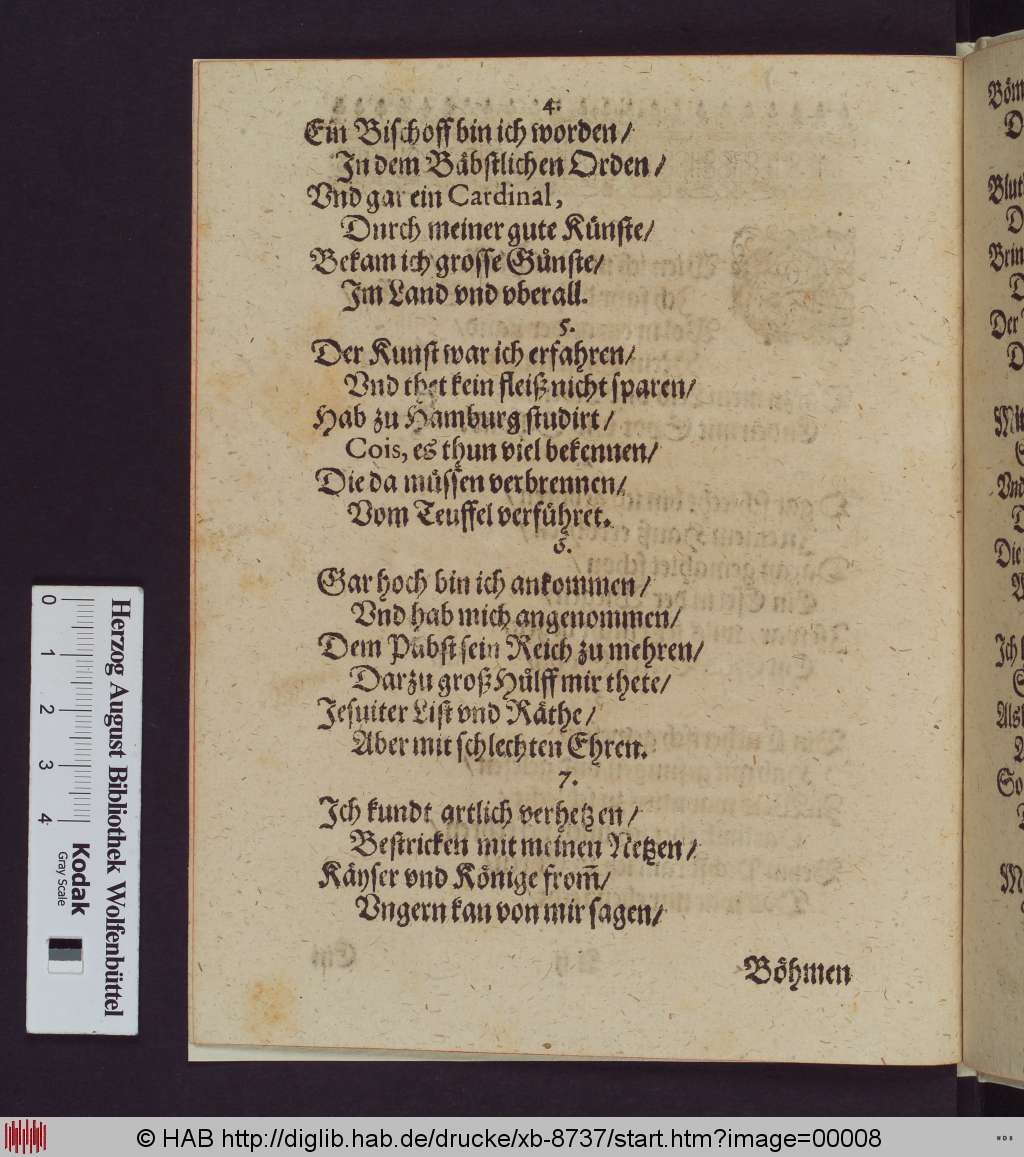 4.
Ein Bischoff bin ich worden/
In dem Bäbstlichen Orden/
Vnd gar ein Cardinal,
Durch meiner gute Künste/
Bekam ich grosse Günste/
Im Land vnd vberall.
5.
Der Kunst war ich erfahren/
Vnd thet kein fleiß nicht sparen/
Hab zu Hamburg studirt/
Cois, es thun viel bekennen/
Die da müssen verbrennen/
Vom Teuffel verführet.
6.
Gar hoch bin ich ankommen/
Vnd hab mich angenommen/
Dem Pabst sein Reich zu mehren/
Darzu groß Hülff mir thete/
Jesuiter List vnd Räthe/
Aber mit schlechten Ehren.
7.
Ich kundt artlich verhetzen/
Bestricken mit meinen Netzen/
Käyser vnd Könige from̃/
Vngern kan von mir sagen/
Böhmen
Böm
D
Blut
D
Brin
D
Der
D
Mit
S
Vnd
D
Die
A
Ich
S
Als
A
So
M
0 1 2 3 4
Herzog August Bibliothek Wolfenbüttel
Kodak
Gray Scale
© HAB http://diglib.hab.de/drucke/xb-8737/start.htm?image=00008